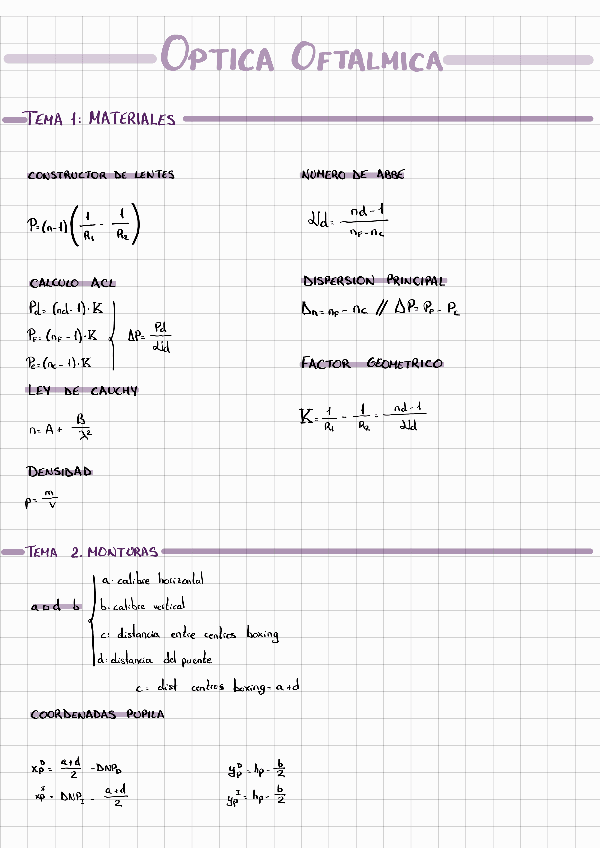 OPTICA OFTALMICA
TEMA 1: MATERIALES
CONSTRUCTOR DE LENTES
P=(n-1)(1/R₁ - 1/R₂)
NUMERO DE ABBE
νd = nd-1/nF-nC
CALCULO ACL
Pd= (nd-1)·K
PF= (nF-1)·K
PC=(nC-1)·K
ΔP= Pd/νd
DISPERSION PRINCIPAL
Δn= nF - nC // ΔP= PF - PC
FACTOR GEOMETRICO
K= 1/R₁ - 1/R₂ = nd-1/νd
LEY DE CAUCHY
n= A + B/λ²
DENSIDAD
ρ= m/V
TEMA 2. MONTURAS
a □ d b
a. calibre horizontal
b. calibre vertical
c: distancia entre centres boxing
d: distancia del puente
c= dist centres boxing= a+d
COORDENADAS PUPILA
xₚᴰ = a+d/2 - DNP_D
xₚᴵ = DNP_I - a+d/2
yₚᴰ = hp - b/2
yₚᴵ = hp - b/2